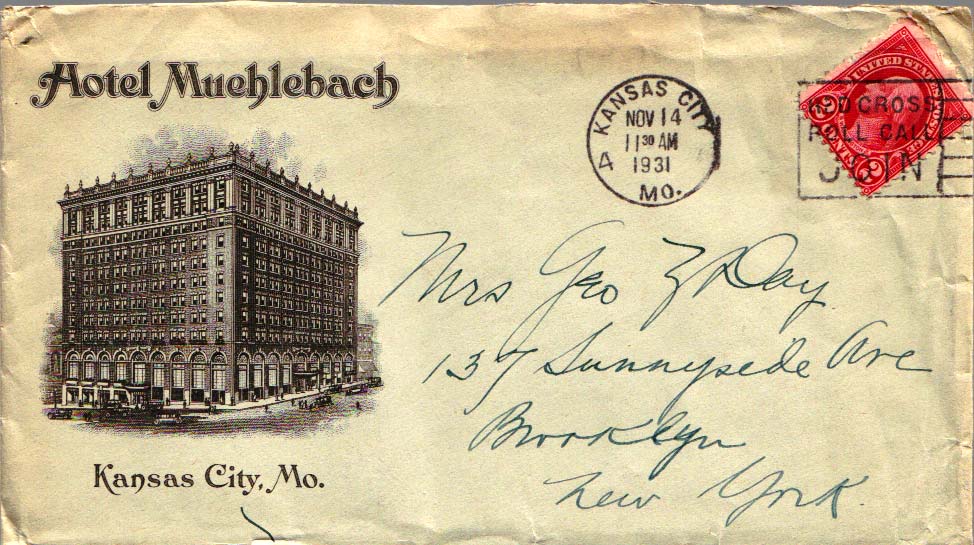 Hotel Muehlebach
Kansas City, Mo.
KANSAS CITY
4
NOV 14
11 30 AM
1931
MO.
RED CROSS
ROLL CALL
JOIN
UNITED STATES
Mrs Geo Z Day
137 Sunnyside Ave
Brooklyn
New York.